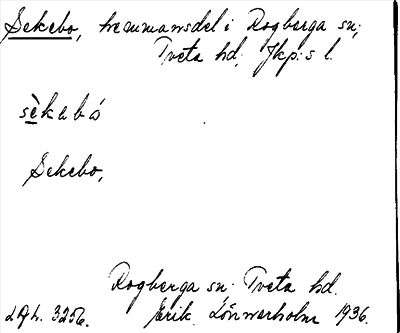 Sekebo, hemmansdel i Rogberga sn;
Tveta hd; Jkp:s l.
sèkebó
Sekebo,
Rogberga sn. Tveta hd.
Erik Lönnerholm 1936.